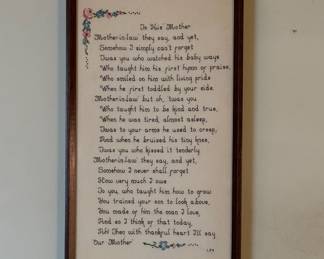 To His Mother
Mother-in-law they say, and yet,
Somehow I simply can't forget
Twas you who watched his baby ways
Who taught him his first hymn of praise,
Who smiled on him with loving pride
When he first toddled by your side.
Mother-in-law but oh, twas you
Who taught him to be kind and true,
When he was tired, almost asleep,
Twas to your arms he used to creep,
And when he bruised his tiny knee,
Twas you who kissed it tenderly
Mother-in-law they say, and yet,
Somehow I never shall forget
How very much I owe
To you, who taught him how to grow
You trained your son to look above,
You made of him the man I love,
And so I think of that today,
Ah! Then with thankful heart I'll say
Our Mother